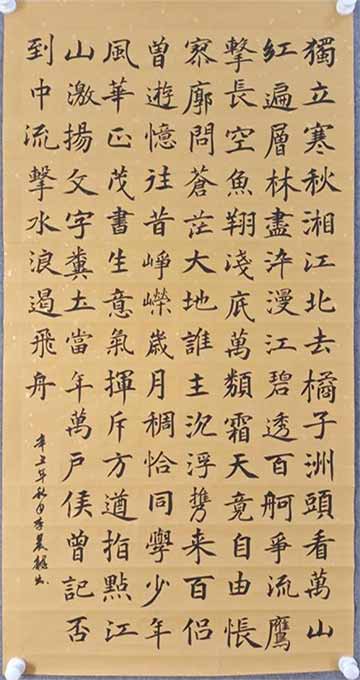 獨立寒秋湘江北去橘子洲頭看萬山
紅遍層林盡染漫江碧透百舸爭流鷹
擊長空魚翔淺底萬類霜天竟自由悵
寥廓問蒼茫大地誰主沉浮攜来百侶
曾遊憶往昔崢嶸歲月稠恰同學少年
風華正茂書生意氣揮斥方遒指點江
山激揚文字糞土當年萬戶侯曾記否
到中流擊水浪遏飛舟
辛丑年秋月李晨